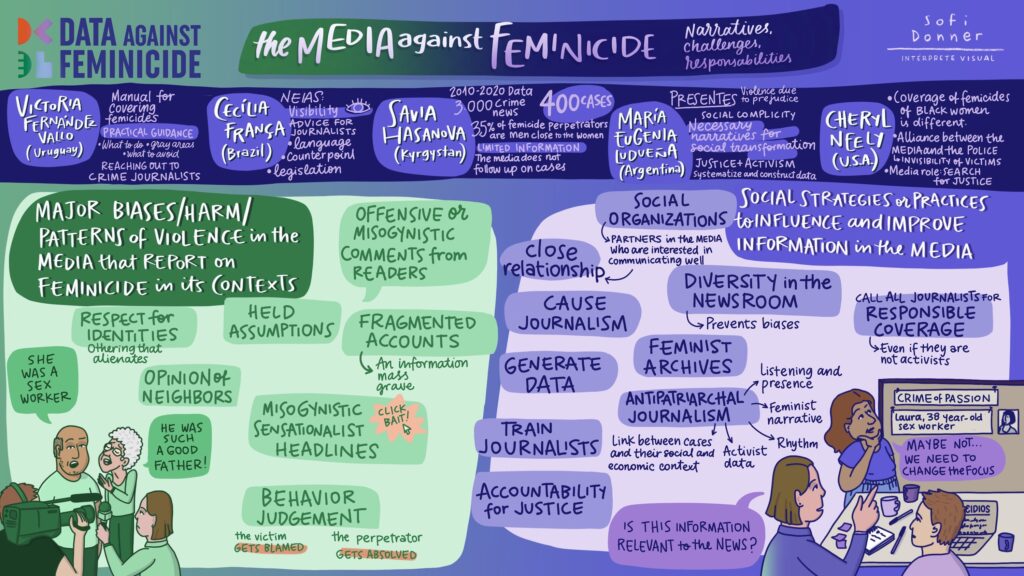 DATA AGAINST
FEMINICIDE
the MEDIA against FEMINICIDE
Narratives,
challenges,
responsabilities
Sofi
Donner
INTERPRETE VISUAL
VICTORIA
FERNÁNDEZ
VALLO
(Uruguay)
Manual for
covering
femicides
PRACTICAL GUIDANCE
• What to do • gray areas
• What to avoid
REACHING OUT TO
CRIME JOURNALISTS
CECÍLIA
FRANÇA
(Brazil)
NEIAS:
Visibility
ADVICE FOR
JOURNALISTS
• language
• Counterpoint
• legislation
SAVIA
HASANOVA
(Kyrgystan)
2010-2020 Data
3,000 Crime
news
400 CASES
35% of femicide perpetrators
are men close to the women
LIMITED INFORMATION
The media does not
follow up on cases
MARÍA
EUGENIA
LUDUEÑA
(Argentina)
PRESENTES
Violence due
to prejudice
SOCIAL COMPLICITY
Necessary
narratives for
social transformation
JUSTICE + ACTIVISM
Systematize and construct data
CHERYL
NEELY
(U.S.A.)
• Coverage of femicides
of BLACK women
is different
• Alliance between the
MEDIA and the POLICE
↳ INVISIBILITY OF VICTIMS
• Media role: SEARCH
for JUSTICE
MAJOR BIASES/HARM/
PATTERNS of VIOLENCE in the
MEDIA that REPORT on
FEMINICIDE in its CONTEXTS
OFFENSIVE or
MISOGYNISTIC
COMMENTS from
READERS
RESPECT for
IDENTITIES
Othering that
alienates
HELD
ASSUMPTIONS
FRAGMENTED
ACCOUNTS
An information
mass
grave
SHE
WAS A
SEX
WORKER
OPINION of
NEIGHBORS
HE WAS
SUCH
A GOOD
FATHER!
MISOGYNISTIC
SENSATIONALIST
HEADLINES
CLICK
BAIT!
BEHAVIOR
JUDGEMENT
the victim
GETS BLAMED
the perpetrator
GETS ABSOLVED
SOCIAL STRATEGIES or PRACTICES
to INFLUENCE and IMPROVE
INFORMATION in the MEDIA
SOCIAL
ORGANIZATIONS
PARTNERS in the MEDIA
who are interested in
communicating well
Close
relationship
CAUSE
JOURNALISM
DIVERSITY in the
NEWSROOM
Prevents biases
CALL ALL JOURNALISTS FOR
RESPONSIBLE
COVERAGE
Even if they are
not activists
GENERATE
DATA
FEMINIST
ARCHIVES
ANTIPATRIARCHAL
JOURNALISM
Listening and
presence
Feminist
narrative
Rhythm
Activist
data
Link between cases
and their social and
economic context
TRAIN
JOURNALISTS
ACCOUNTABILITY
for JUSTICE
CRIME of PASSION
Laura, 38 year-old
sex worker
MAYBE NOT...
WE NEED TO
CHANGE the FOCUS
IS THIS INFORMATION
RELEVANT to the NEWS?